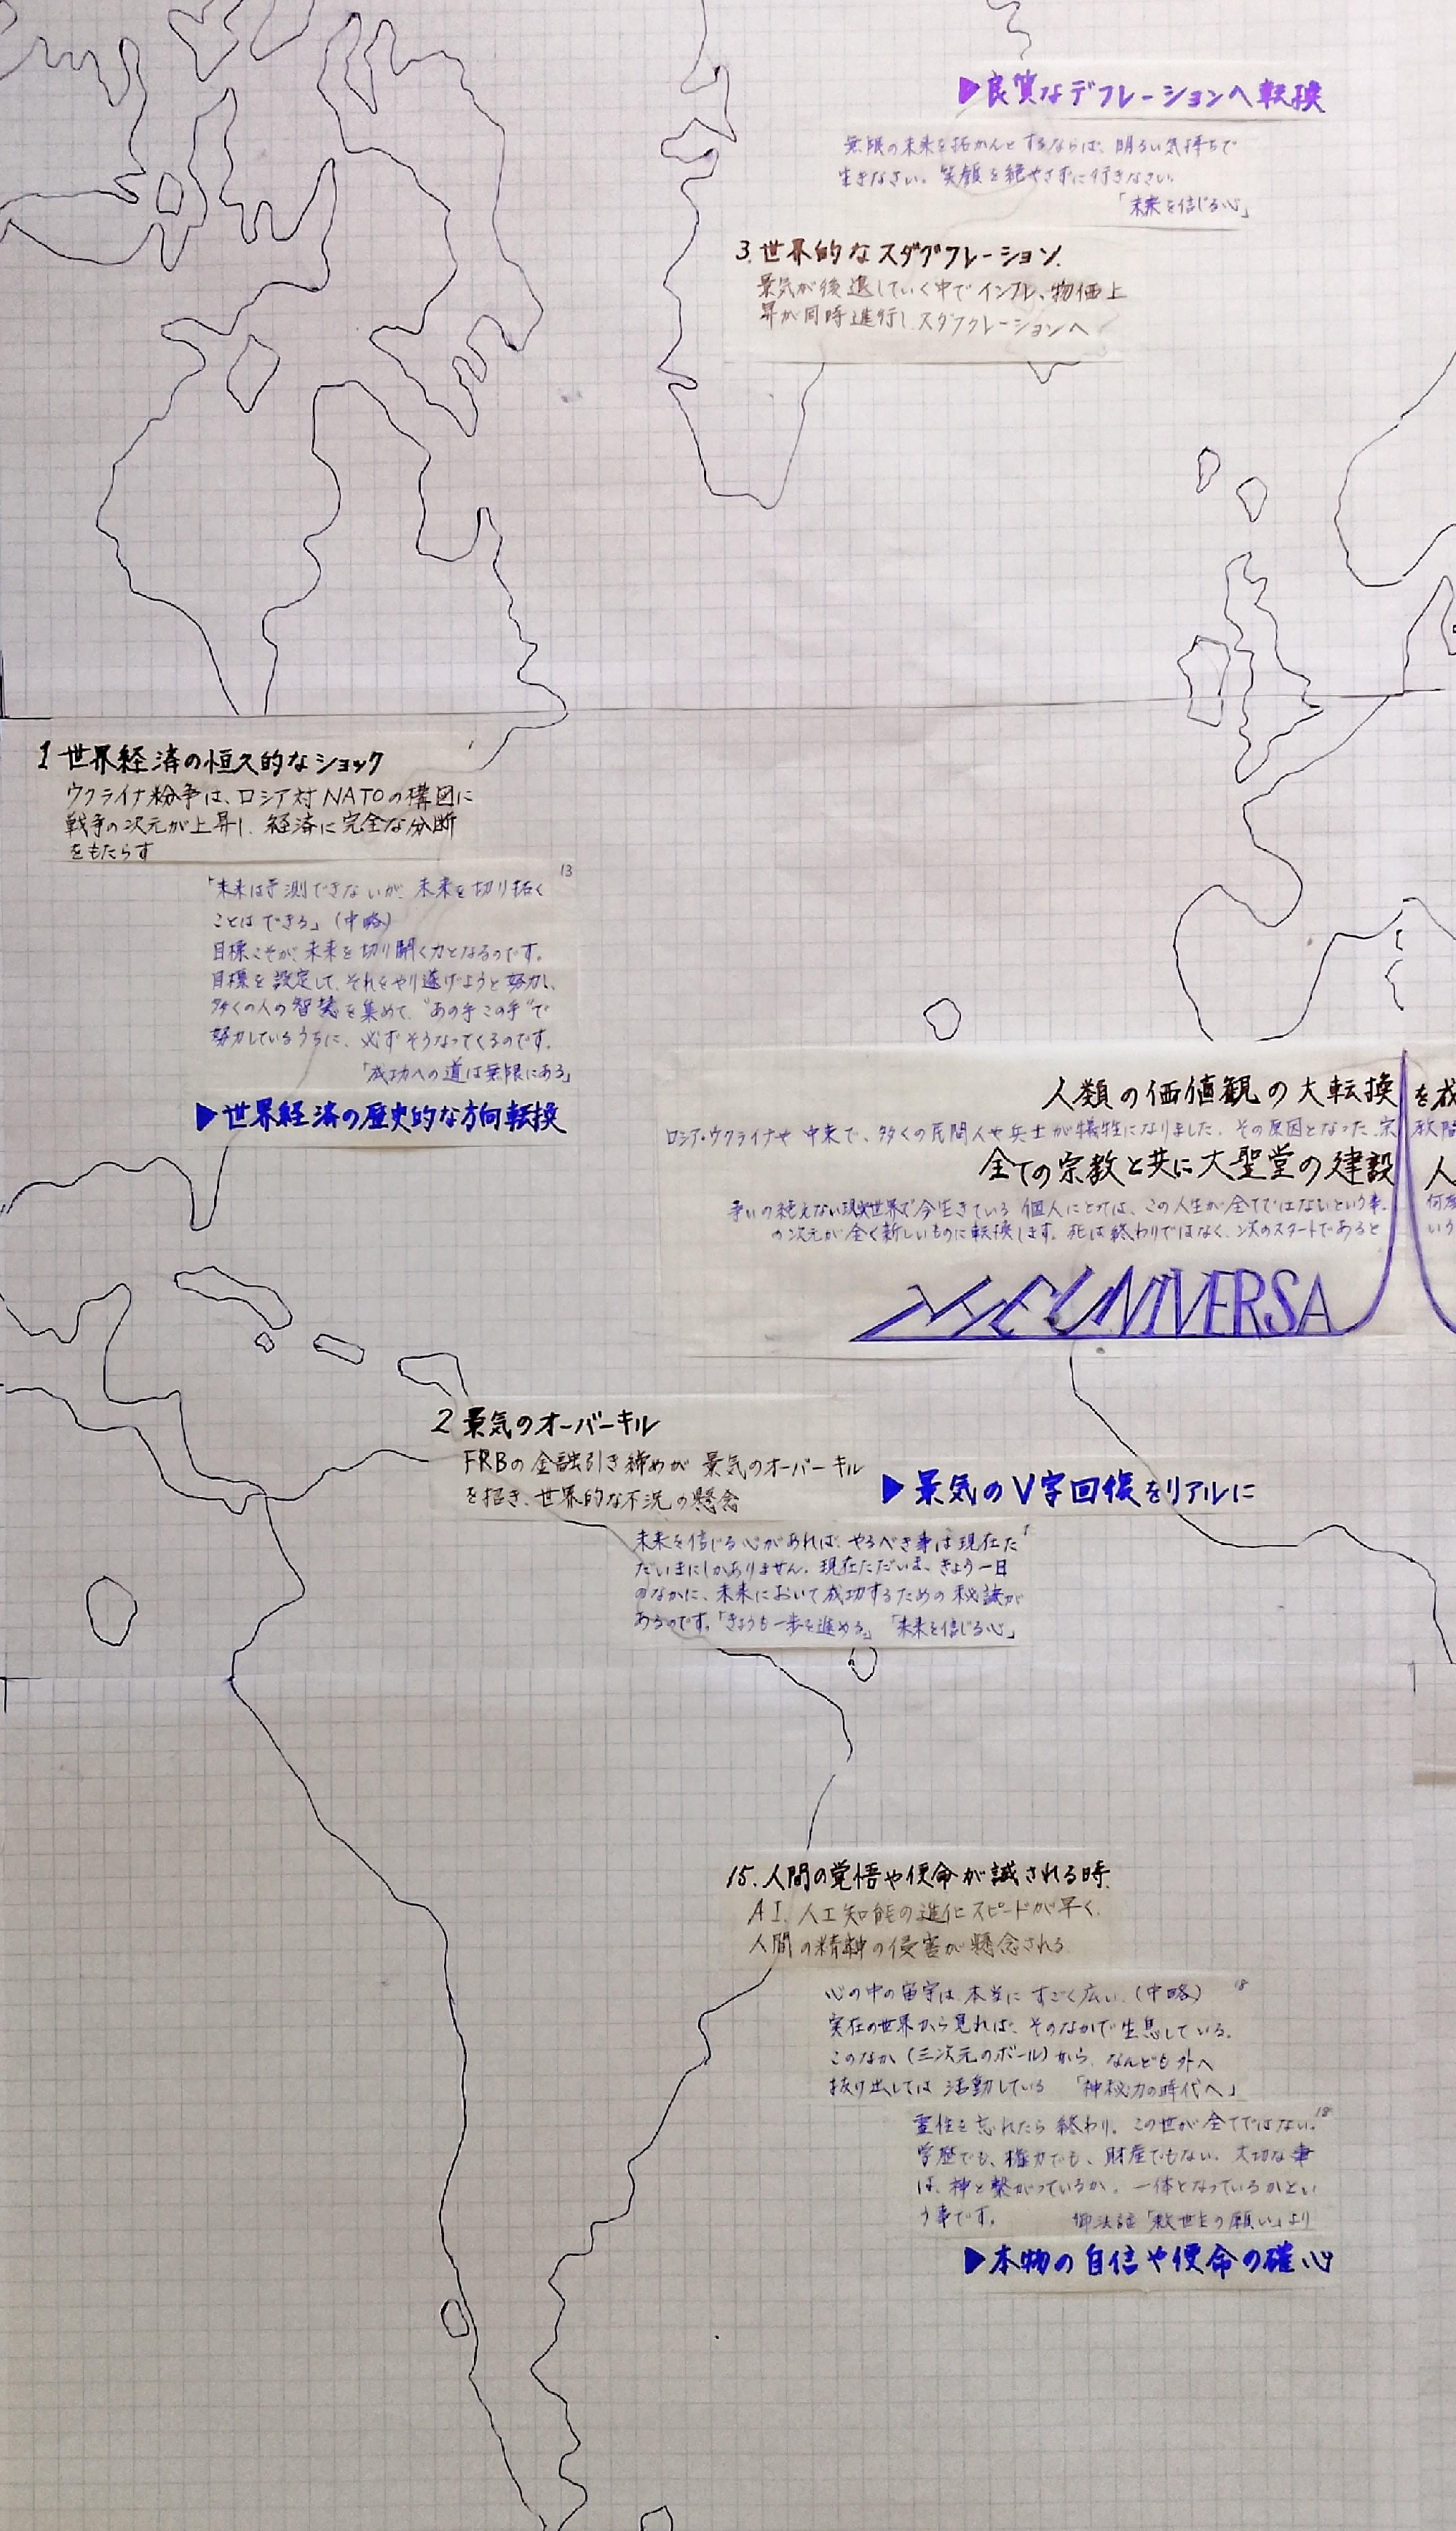 ▶良質なデフレーションへ転換
無限の未来を拓かんとするならば、明るい気持ちで
生きなさい。笑顔を絶やさずに行きなさい。
「未来を信じる心」
3.世界的なスダグフレーション.
景気が後退していく中でインフレ、物価上
昇が同時進行し、スダグフレーションへ
1 世界経済の恒久的なショック
ウクライナ紛争は、ロシア対NATOの構図に
戦争の次元が上昇し、経済に完全な分断
をもたらす
13
「未来は予測できないが、未来を切り拓く
ことはできる」(中略)
目標こそが、未来を切り開く力となるのです。
目標を設定して、それをやり遂げようと努力し、
多くの人の智慧を集めて、“あの手この手”で
努力しているうちに、必ずそうなってくるのです。
「成功への道は無限にある」
▶世界経済の歴史的な方向転換
人類の価値観の大転換を成
ロシア・ウクライナや中東で、多くの民間人や兵士が犠牲になりました。その原因となった宗教
全ての宗教と共に大聖堂の建設 人
争いの絶えない現実世界で今生きている個人にとっては、この人生が全てではないという事、何度
の次元が全く新しいものに転換します。死は終わりではなく、次のスタートであるという
UNIVERSA
2 景気のオーバーキル
FRBの金融引き締めが景気のオーバーキル
を招き、世界的な不況の懸念
▶景気のV字回復をリアルに
未来を信じる心があれば、やるべき事は現在た
だいまにしかありません。現在ただいま、きょう一日
のなかに、未来において成功するための秘訣が
あるのです。「きょうも一歩を進める」「未来を信じる心」
15.人間の覚悟や使命が試される時.
AI、人工知能の進化スピードが早く、
人間の精神の侵害が懸念される
18
心の中の宇宙は、本当にすごく広い。(中略)
実在の世界から見れば、そのなかで生息している。
このなか(三次元のボール)から、なんども外へ
抜け出しては活動している 「神秘力の時代へ」
18
霊性を忘れたら終わり。この世が全てではない。
学歴でも、権力でも、財産でもない。大切な事
は、神と繋がっているか。一体となっているかとい
う事です。 御法話「救世主の願い」より
▶本物の自信や使命の確心